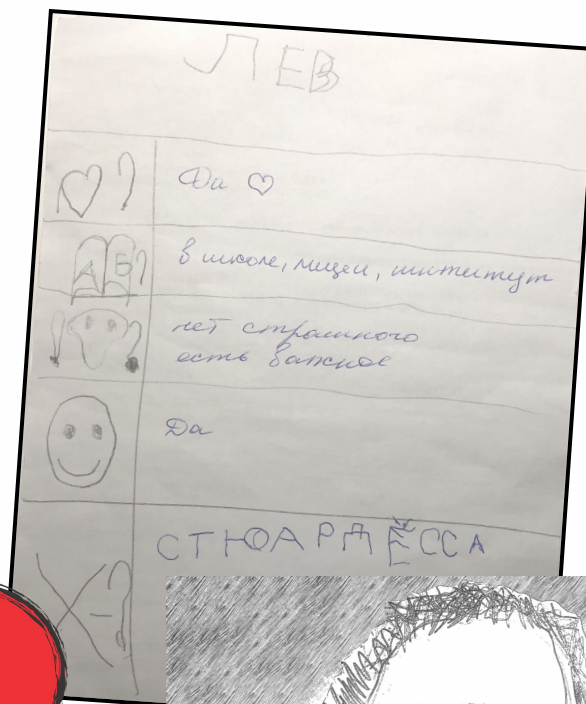 ЛЕВ
?
Да
А Б ?
в школе, лицеи, институт
! ?
нет страшного
есть важное
Да
СТЮАРДЕССА
?